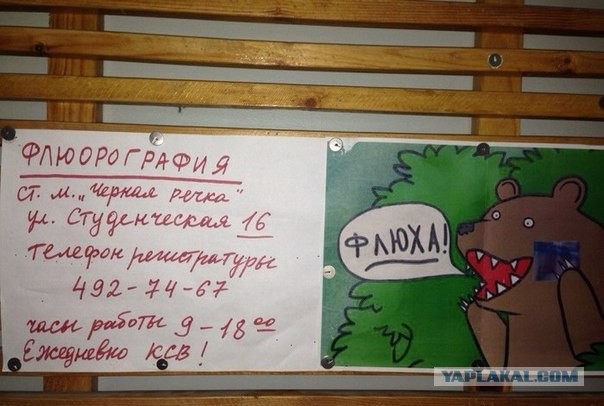 ФЛЮОРОГРАФИЯ
ст. м. „Черная речка"
ул. Студенческая 16
телефон регистратуры
492-74-67
часы работы 9-18⁰⁰
Ежедневно КСВ!
ФЛЮХА!
YAPLAKAL.COM